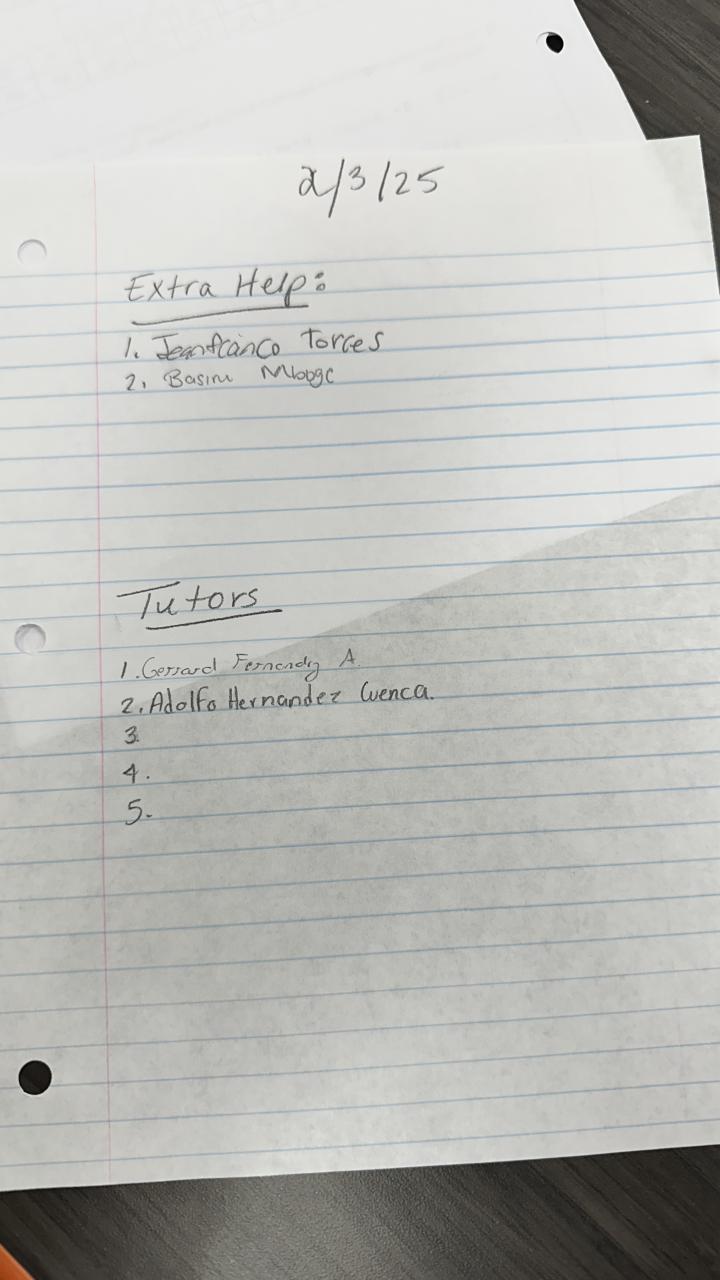 2/3/25
Extra Help:
1. Jeanfranco Torres
2. Basiru
Tutors
1. Gerrard A.
2. Adolfo Hernandez Cuenca.
3.
4.
5.